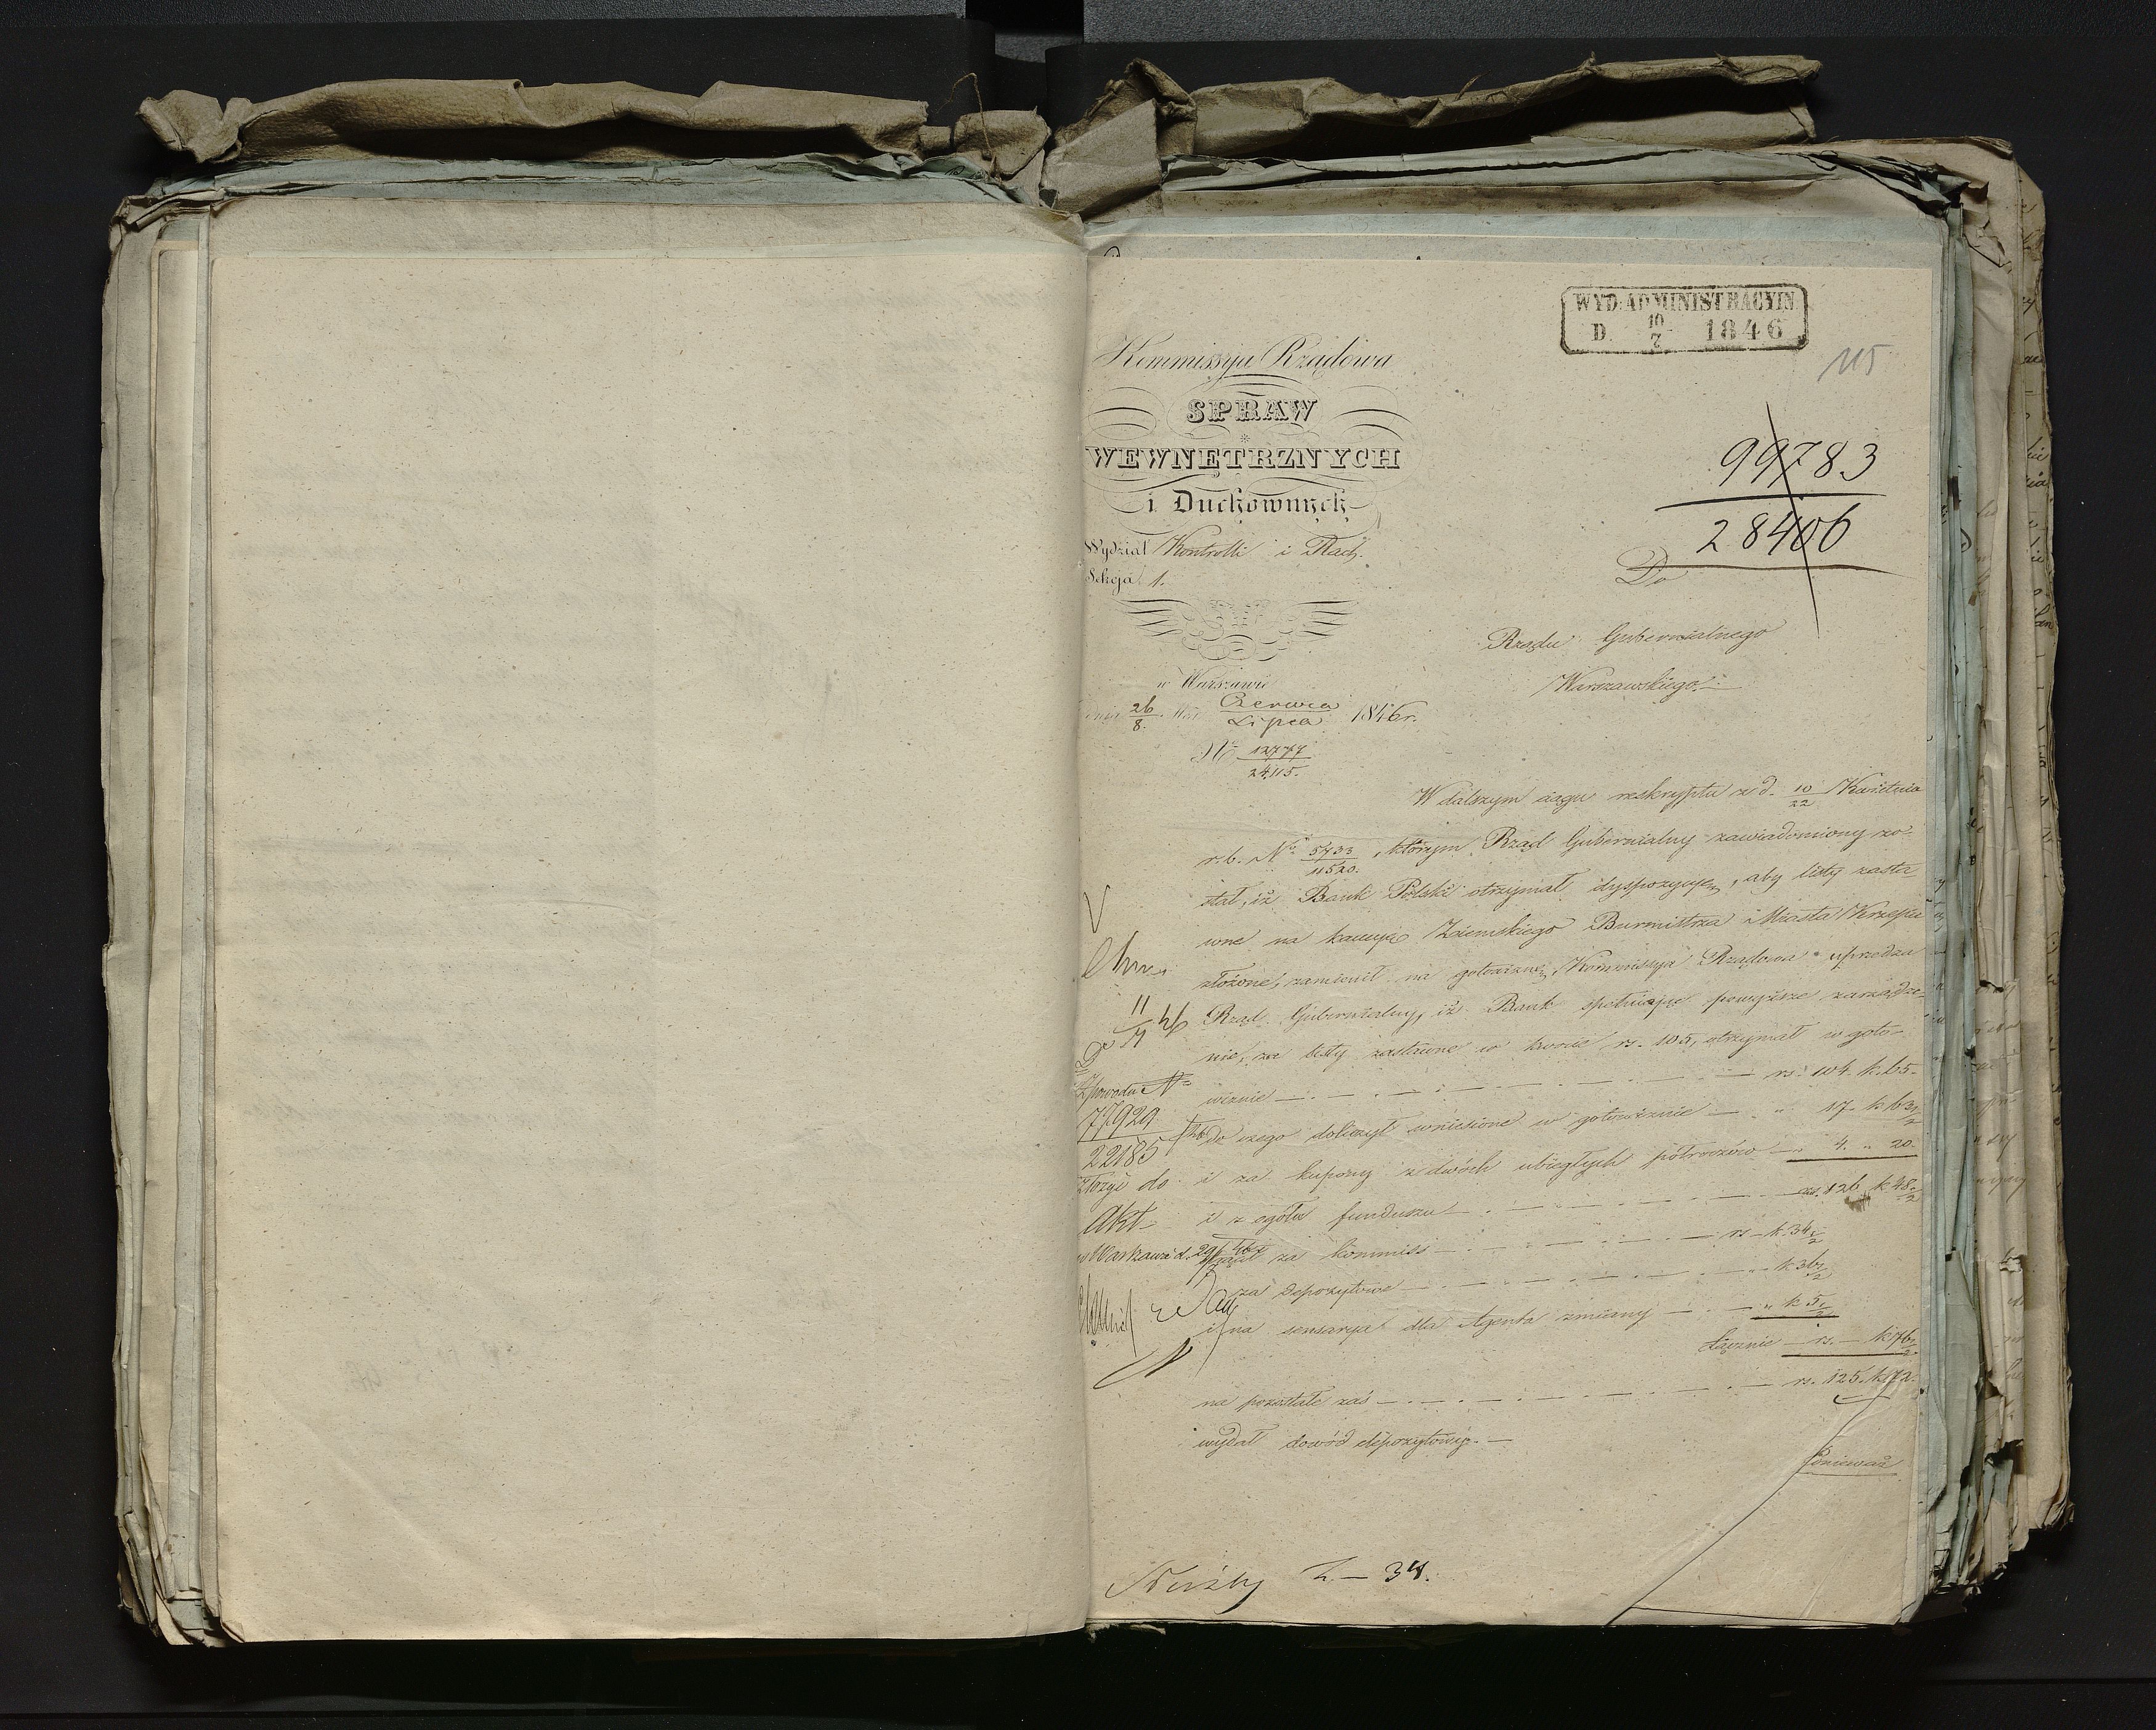 WYD: ADMINISTRACYIN
D. 10/7 1846
115
Kommissya Rządowa
SPRAW
WEWNĘTRZNYCH
i Duchownych
Wydział Kontrolli i Rach.
Sekcja 1.
99783
28406
Do
Rządu Gubernialnego
Warszawskiego.
w Warszawie
dnia 26/8. Mca Czerwca/Lipca 1846 r.
No 12777/24115.
W dalszym ciągu reskryptu z d. 10/22 Kwietnia
r. b. No 5733/11520. którym Rząd Gubernialny zawiadomiony zo-
stał, iż Bank Polski otrzymał dyspozycyę, aby listy zasta-
wne na kaucyę Ziemskiego Burmistrza Miasta Krzepic
złożone, zamienił na gotowiznę, Kommissya Rządowa uprzedza
Rząd Gubernialny, iż Bank spełniając powyższe zarządze-
nie, za listy zastawne w kwocie rs. 105, otrzymał w goto-
wiznie rs. 104. k. 65.
do czego doliczył wniesione w gotowiznie " 17. k. 63 1/2
i za kupony z dwóch ubiegłych półroczów " 4. " 20.
i z ogółu funduszu rs. 126 k. 48 1/2
za kommiss rs - k. 34 1/2
za depozytowe " k. 36 1/2
i na sensarya dla Agenta zmiany " k. 5 1/2
Łącznie rs. - k. 76 1/2
na pozostałe zaś rs. 125. k. 72.
wydał dowód depozytowy.
Ponieważ
11/7 46
Z powodu No
77929
22185
złożyć do
Akt
w Warszawie d. 29
34.